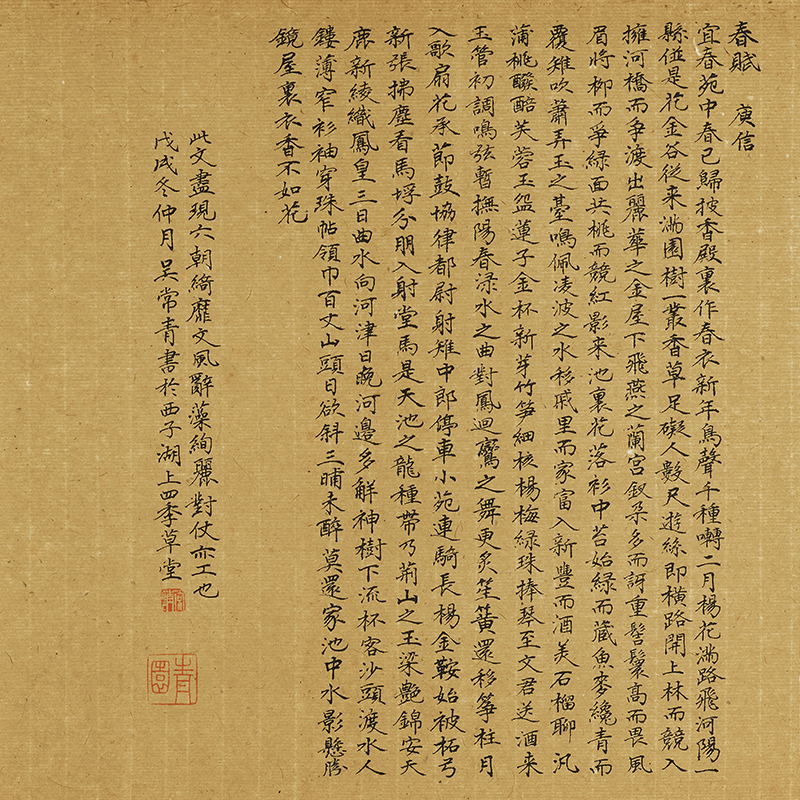 春賦　庾信
宜春苑中春已歸披香殿裏作春衣新年鳥聲千種囀二月楊花滿路飛河陽一
縣併是花金谷從来滿園樹一叢香草足礙人數尺遊絲即橫路開上林而競入
擁河橋而爭渡出麗華之金屋下飛燕之蘭宫釵朶多而訝重髻鬟高而畏風
眉將柳而爭綠面共桃而競紅影来池裏花落衫中苔始綠而藏魚麥纔青而
覆雉吹簫弄玉之臺鳴佩凌波之水移戚里而家富入新豐而酒美石榴聊汎
蒲桃醱醅芙蓉玉盌蓮子金杯新芽竹笋細核楊梅綠珠捧琴至文君送酒来
玉管初調鳴弦暫撫陽春渌水之曲對鳳迴鸞之舞更炙笙簧還移筝柱月
入歌扇花承節鼓協律都尉射雉中郎停車小苑連騎長楊金鞍始被柘弓
新張拂塵看馬埒分朋入射堂馬是天池之龍種帶乃荊山之玉梁艷錦安天
鹿新綾織鳳皇三日曲水向河津日晚河邊多解神樹下流杯客沙頭渡水人
鏤薄窄衫袖穿珠帖領巾百丈山頭日欲斜三晡未醉莫還家池中水影懸勝
鏡屋裏衣香不如花
此文盡現六朝綺靡文風辭藻絢麗對仗亦工也
戊戌冬仲月吳常青書於西子湖上四季草堂